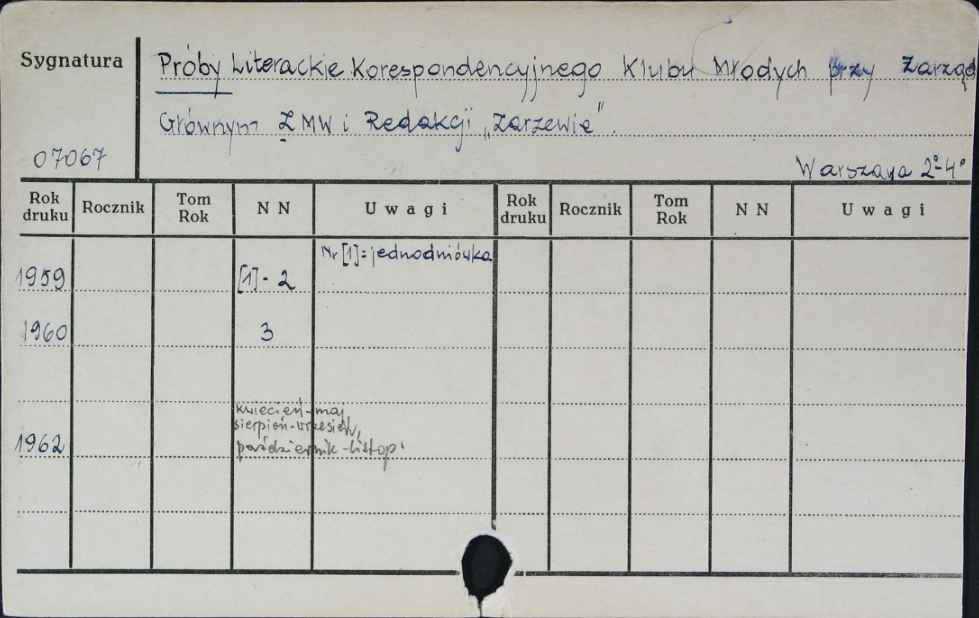 Sygnatura
Próby Literackie Korespondencyjnego Klubu Młodych przy Zarząd
Głównym ZMW i Redakcji „Zarzewie".
07067
Warszawa 2°-4°
Rok druku Rocznik Tom Rok N N Uwagi Rok druku Rocznik Tom Rok N N Uwagi
Nr [1] = jednodniówka
1959 [1] - 2
1960 3
kwiecień-maj
sierpień-wrzesień,
1962 październik-listop.